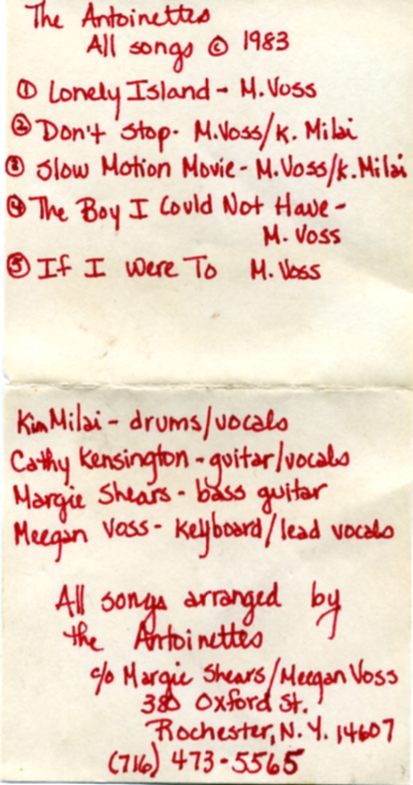 The Antoinettes
All songs © 1983
① Lonely Island - M. Voss
② Don't Stop - M. Voss/K. Milai
③ Slow Motion Movie - M. Voss/K. Milai
④ The Boy I Could Not Have -
M. Voss
⑤ If I Were To M. Voss
Kim Milai - drums/vocals
Cathy Kensington - guitar/vocals
Margie Shears - bass guitar
Meegan Voss - Keyboard/lead vocals
All songs arranged by
the Antoinettes
c/o Margie Shears/Meegan Voss
380 Oxford St.
Rochester, N.Y. 14607
(716) 473-5565